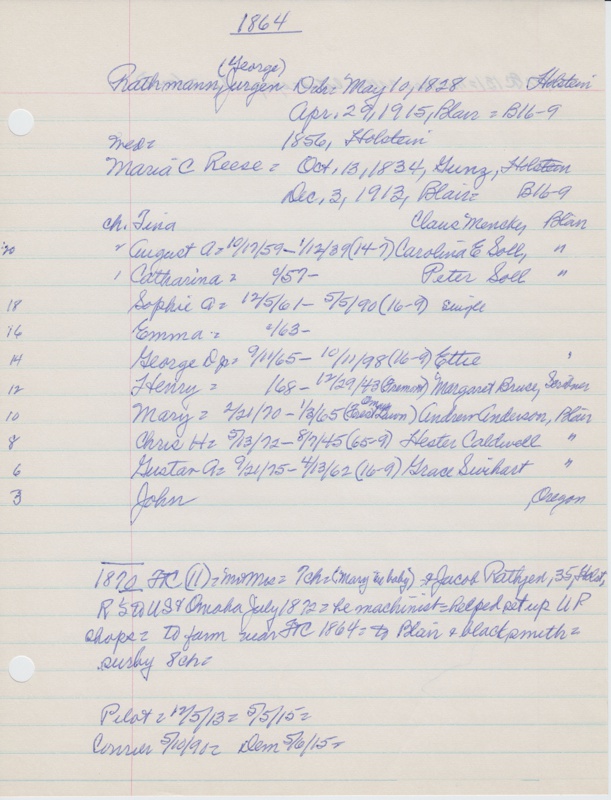 1864
(George)
Rathmann, Jurgen Dch= May 10, 1828 Holstein
Apr. 29, 1915, Blair = B16-9
med= 1856, Holstein
Maria C Reese = Oct. 13, 1834, Gunz, Holstein
Dec. 3, 1913, Blair= B16-9
ch. Tina Claus Mencke, Blair
20 " August A= 10/17/59- 1/12/39(14-7) Carolina E Soll, "
1 Catharina = c/57- Peter Soll "
18 Sophie A= 12/5/61- 5/5/90(16-9) single
16 Emma = c/63-
14 George Dp= 9/11/65- 10/11/98(16-9) Ettie "
12 Henry = 168- 12/29/43(Fremont) Margaret Bruce, Scribner
Omaha
10 Mary = 2/21/70-1/3/65(Forest Lawn) Andrew Anderson, Blair
8 Chris H= 5/13/72-8/7/45(65-9) Hester Caldwell "
6 Gustav A= 9/21/75-4/13/62(16-9) Grace Swihart "
3 John Oregon
1870 FtC (11)= "m & Mos= 7ch=("Mary "ee baby") & Jacob Rathjen, 35, Holst,
R 'S to US & Omaha July 1872= he machinist= helped set up UP
shops= to farm near FtC 1864= to Blair & blacksmith=
surby 8ch=
Pilot= 12/5/13= 5/5/15=
Courier 5/10/90= Dem 5/6/15=